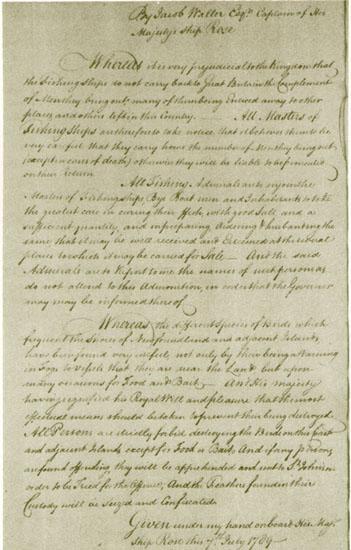 By Jacob Waller Esqr. Captain of His
Majestys Ship Rose
Whereas it is very prejudicial to the Kingdom that
the Fishing Ships do not carry back to Great Britain the Complement
of Men they bring out; many of them being Enticed away to other
places, and others left in this Country. — All Masters of
Fishing Ships are therefore to take notice that
very careful that they carry home the number of Men they bring out
(except in cases of death) otherwise they will be liable to
on their return
All Fishing Admirals are to enjoin the
Masters of Fishing Ships Bye Boat men and Inhabitants to take
the greatest care in curing their Fish, with good Salt, and a
sufficient quantity, and in preparing, ordering & husbanding the
same that it may be well received and Esteemed at the several
places to which it may be carried for Sale — And the said
Admirals are to report to me the names of such persons as
do not attend to this Admonition, in order that the Governor
may be informed thereof
Whereas the different Species of Birds which
frequent the Shores of Newfoundland and adjacent Islands,
have been found very useful, not only by their being a Warning
in Fogs to Vessels that they are near the Land but upon
many occasions for Food and Bait — And His Majesty
having signified his Royal Will and pleasure that the most
effectual means should be taken to prevent their being destroyed
All Persons are strictly forbid destroying the Birds on this Coast
and adjacent Islands except for Food or Bait, And if any persons
are found offending they will be apprehended and sent to St. Johns in
order to be Tried for the Offence, And the Feathers found in their
Custody will be seized and Confiscated.
Given under my hand on board His Majs.
Ship Rose this 7th July 1789 —